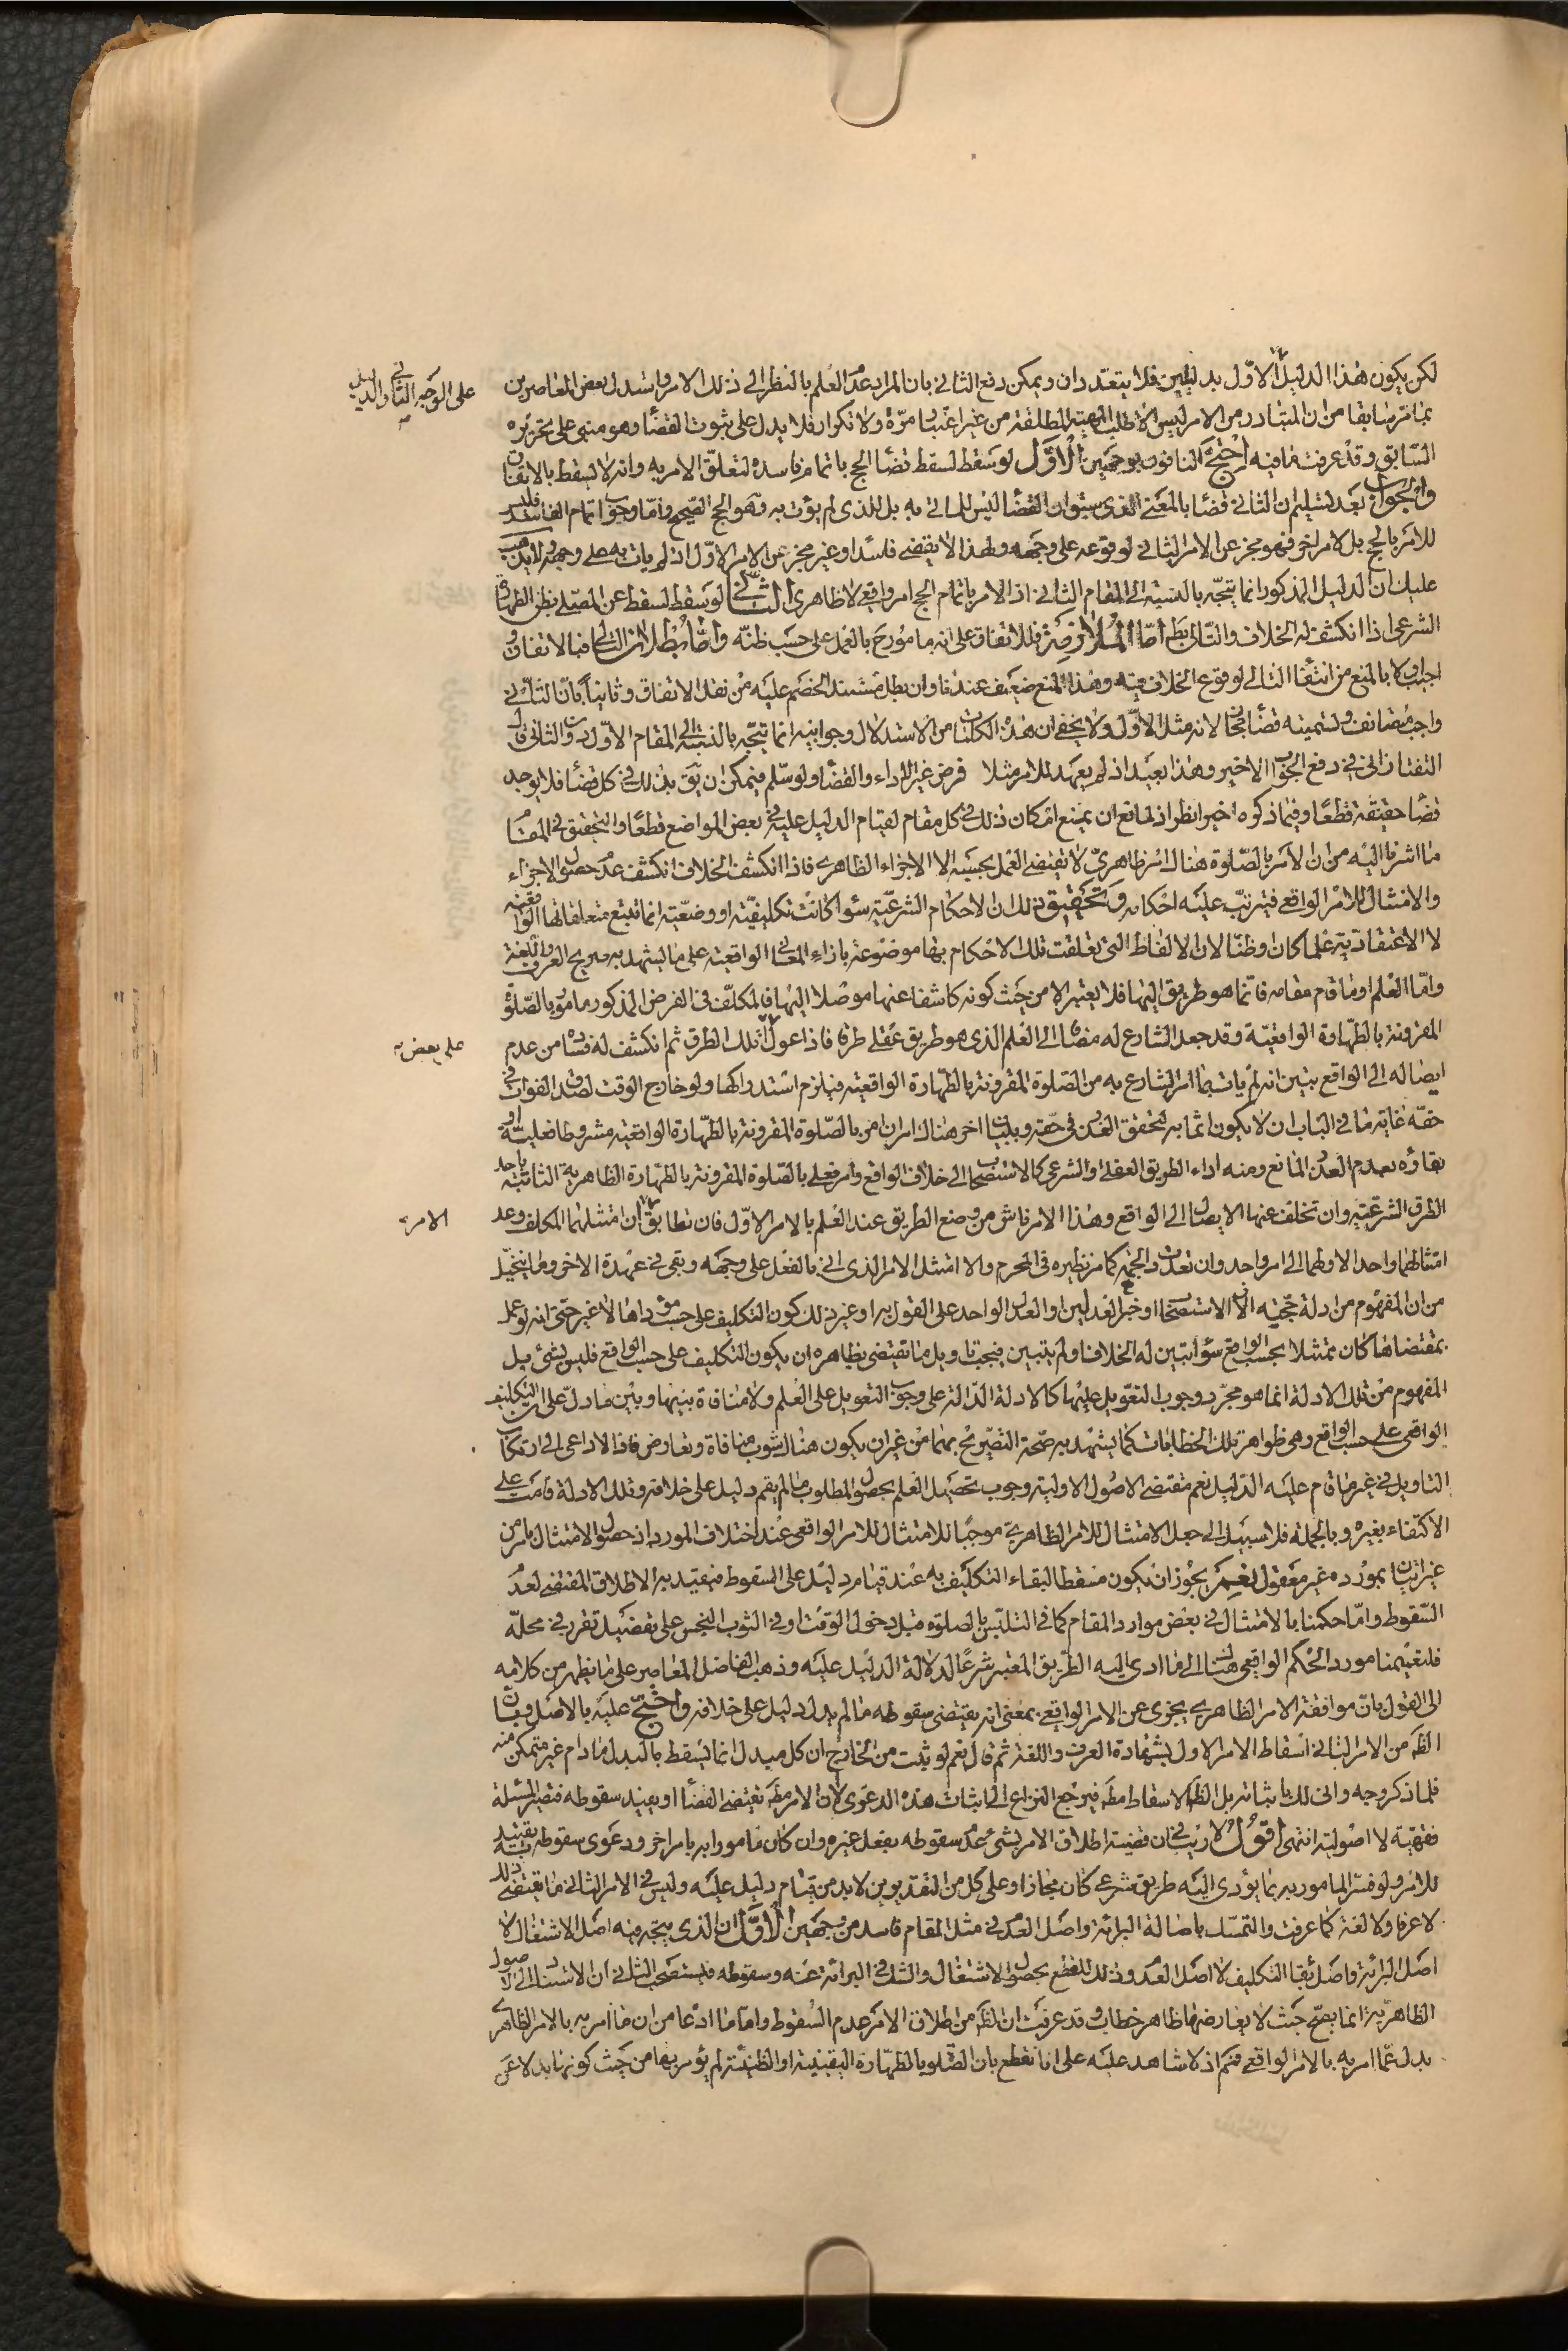 لكن يكون هذا الدليل الاول بدليلين فلا يتعددان ويمكن دفع الثاني بان المراد عدم العلم بالنظر الى ذلك الامر واستدل بعض المعاصرين
على الوجه الثاني والدليل
بما مر سابقا من ان المتبادر من الامر ليس الا طلب المهية المطلقة من غير اعتبار مرة ولا تكرار فلا يدل على ثبوت القضاء وهو مبني على تحريره
السابق وقد عرفت ما فيه احتج النافون بوجهين الاول لو سقط لسقط قضاء الحج باتمام فاسده لتعلق الامر به وانه لا يسقط بالاتفاق
والجواب بعد تسليم ان الثاني قضاء بالمعنى الذي سبق ان القضاء ليس للماتي به بل للذي لم يؤت به وهو الحج الصحيح واما وجوب اتمام الفاسد فليس
للامر بالحج بل لامر اخر فهو مجز عن الامر الثاني لوقوعه على وجهه ولهذا لا يقضى فاسدا وغير مجز عن الامر الاول اذ لم يات به على وجهه لا يذهب
عليك ان الدليل المذكور انما يتجه بالنسبة الى المقام الثاني اذ الامر باتمام الحج امر واقعي لا ظاهري الثاني لو سقط لسقط عن المصلي بظن الطهارة
الشرعي اذا انكشف له الخلاف والتالي بط اما الملازمة فللاتفاق على انه مامور ح بالعمل على حسب ظنه واما بطلان التالي فبالاتفاق
اجيب اولا بالمنع من انتفاء التالي لوقوع الخلاف فيه وهذا المنع ضعيف عندنا وان بطل مستند الخصم عليه من نقل الاتفاق وثانيا بان الثاني
واجب مستانف وتسميته قضاء مجاز لانه مثل الاول ولا يخفى ان هذه الكلمات من الاستدلال وجوابيه انما يتجه بالنسبة الى المقام الاول والثاني قال
التفتازاني في دفع الجواب الاخير وهذا بعيد اذ لم يعهد للامر مثلا فرض غير الاداء والقضاء ولو سلم فيمكن ان يق بذلك في كل قضاء فلا يوجد
قضاء حقيقة قطعا وفيما ذكره اخيرا نظر اذ لمانع ان يمنع امكان ذلك في كل مقام لقيام الدليل عليه في بعض المواضع قطعا والتحقيق في المقام
ما اشرنا اليه من ان الامر بالصلوة هناك امر ظاهري لا يقتضي العمل بحسبه الا الاجزاء الظاهري فاذا انكشف الخلاف انكشف عدم حصول الاجزاء
والامتثال للامر الواقعي فيترتب عليه احكامه وتحقيق ذلك ان الاحكام الشرعية سواء كانت تكليفية او وضعية انما تتبع متعلقاتها الواقعية
لا الاعتقادية علما كان وظنا لان الالفاظ التي تعلقت تلك الاحكام بها موضوعة بازاء المعاني الواقعية على ما يشهد به صريح العرف واللغة
واما العلم او ما قام مقامه فانما هو طريق اليها فلا يعتبر الا من حيث كونه كاشفا عنها موصلا اليها فالمكلف في الفرض المذكور مامور بالصلوة
المقرونة بالطهارة الواقعية وقد جعل الشارع له مضافا الى العلم الذي هو طريق عقلي طرقا فاذا عول تلك الطرق ثم انكشف له فساده من عدم
على بعض
ايصاله الى الواقع تبين انه لم يات بما امر الشارع به من الصلوة المقرونة بالطهارة الواقعية فيلزم استدراكها ولو خارج الوقت لصدق الفوات في
حقه غاية ما في الباب ان لا يكون اثما به لتحقق العذر في حقه وببيان اخر هناك امران امر بالصلوة المقرونة بالطهارة الواقعية مشروطا فعليته او
بقاؤه بعدم العذر المانع ومنه اداء الطريق العقلي والشرعي كالاستصحاب الى خلاف الواقع وامر فعلي بالصلوة المقرونة بالطهارة الظاهرية الثابتة باحد
الطرق الشرعية وان تخلف عنها الايصال الى الواقع وهذا الامر ناش من وضع الطريق عند العلم بالامر الاول فان تطابق ان امتثلهما المكلف وعد
الامر
امتثالهما واحدا لاولهما الى امر واحد وان تعددت الجهة كما مر نظيره في المحرم والا امتثل الامر الذي اتى بالفعل على وجهه وبقي في عهدة الاخر وما يتخيل
من ان المفهوم من ادلة حجية الاستصحاب او خبر العدلين او العدل الواحد على القول به او غير ذلك كون التكليف على حسب مؤداها لا غير حتى انه لو عمل
بمقتضاها كان ممتثلا بحسب الواقع سواء تبين له الخلاف او لم يتبين فيجب تاويل ما يقتضي بظاهره ان يكون التكليف على حسب الواقع فليس بشئ بل
المفهوم من تلك الادلة انما هو مجرد وجوب التعويل عليها كالادلة الدالة على وجوب التعويل على العلم ولا منافاة بينها وبين ما دل على ان التكليف
الواقعي على حسب الواقع وهي ظواهر تلك الخطابات كما يشهد به صحة التصريح بهما من غير ان يكون هناك شوب منافاة وتعارض فاذا لا داعي الى ارتكاب
التاويل في غير ما قام عليه الدليل نعم مقتضى الاصول الاولية وجوب تحصيل العلم بحصول المطلوب ما لم يقم دليل على خلافه وتلك الادلة قامت على
الاكتفاء بغيره وبالجملة فلا سبيل الى جعل الامتثال للامر الظاهري موجبا للامتثال للامر الواقعي عند اختلاف المورد اذ حصول الامتثال بامر من
غير اتيان بمورده غير معقول نعم يجوز ان يكون مسقطا لبقاء التكليف به عند قيام دليل على السقوط فيقيد به الاطلاق المقتضي لعدم
السقوط واما حكمنا بالامتثال في بعض موارد المقام كما في التلبس بالصلوة قبل دخول الوقت او في الثوب النجس على تفصيل تقرر في محله
فلتعيمنا مورد الحكم الواقعي هناك الى ما ادى اليه الطريق المعتبر شرعا لدلالة الدليل عليه وذهب الفاضل المعاصر على ما يظهر من كلامه
الى القول بان موافقة الامر الظاهري يجزي عن الامر الواقعي بمعنى انه يقتضي سقوطه ما لم يدل دليل على خلافه واحتج عليه بالاصل وبان
الظ من الامر الثاني اسقاط الامر الاول بشهادة العرف واللغة ثم قال نعم لو ثبت من الخارج ان كل مبدل انما يسقط بالبدل ما دام غير متمكن منه
فلما ذكر وجه وانى لك باثباته بل الظ الاسقاط مط فيرجع النزاع الى اثبات هذه الدعوى لان الامر مط يقتضي القضاء او يفيد سقوطه فتصير المسئلة
فقهية لا اصولية انتهى اقول لا ريب في ان قضية اطلاق الامر بشئ عدم سقوطه بفعل غيره وان كان مامورا به بامر اخر ودعوى سقوطه به تقييد
للامر ولو فسر المامور به بما يؤدي اليه طريق شرعي كان مجازا وعلى كل من التقديرين لا بد من قيام دليل عليه وليس في الامر الثاني ما يقتضي ذلك
لا عرفا ولا لغة كما عرفت والتمسك باصالة البرائة واصل العدم في مثل المقام فاسد من وجهين الاول ان الذي يتجه فيه اصل الاشتغال لا
اصل البرائة واصل بقاء التكليف لا اصل العدم وذلك للقطع بحصول الاشتغال والشك في البرائة عنه وسقوطه فيستصحب الثاني ان الاستناد الى الاصول
الظاهرية انما يصح حيث لا يعارضها ظاهر خطاب وقد عرفت ان الظ من اطلاق الامر عدم السقوط واما ما ادعاه من ان ما امر به بالامر الظاهري
بدل عما امر به بالامر الواقعي فمم اذ لا شاهد عليه على انا نقطع بان الصلوة بالطهارة اليقينية او الظنية لم يؤمر بها من حيث كونها بدلا عن